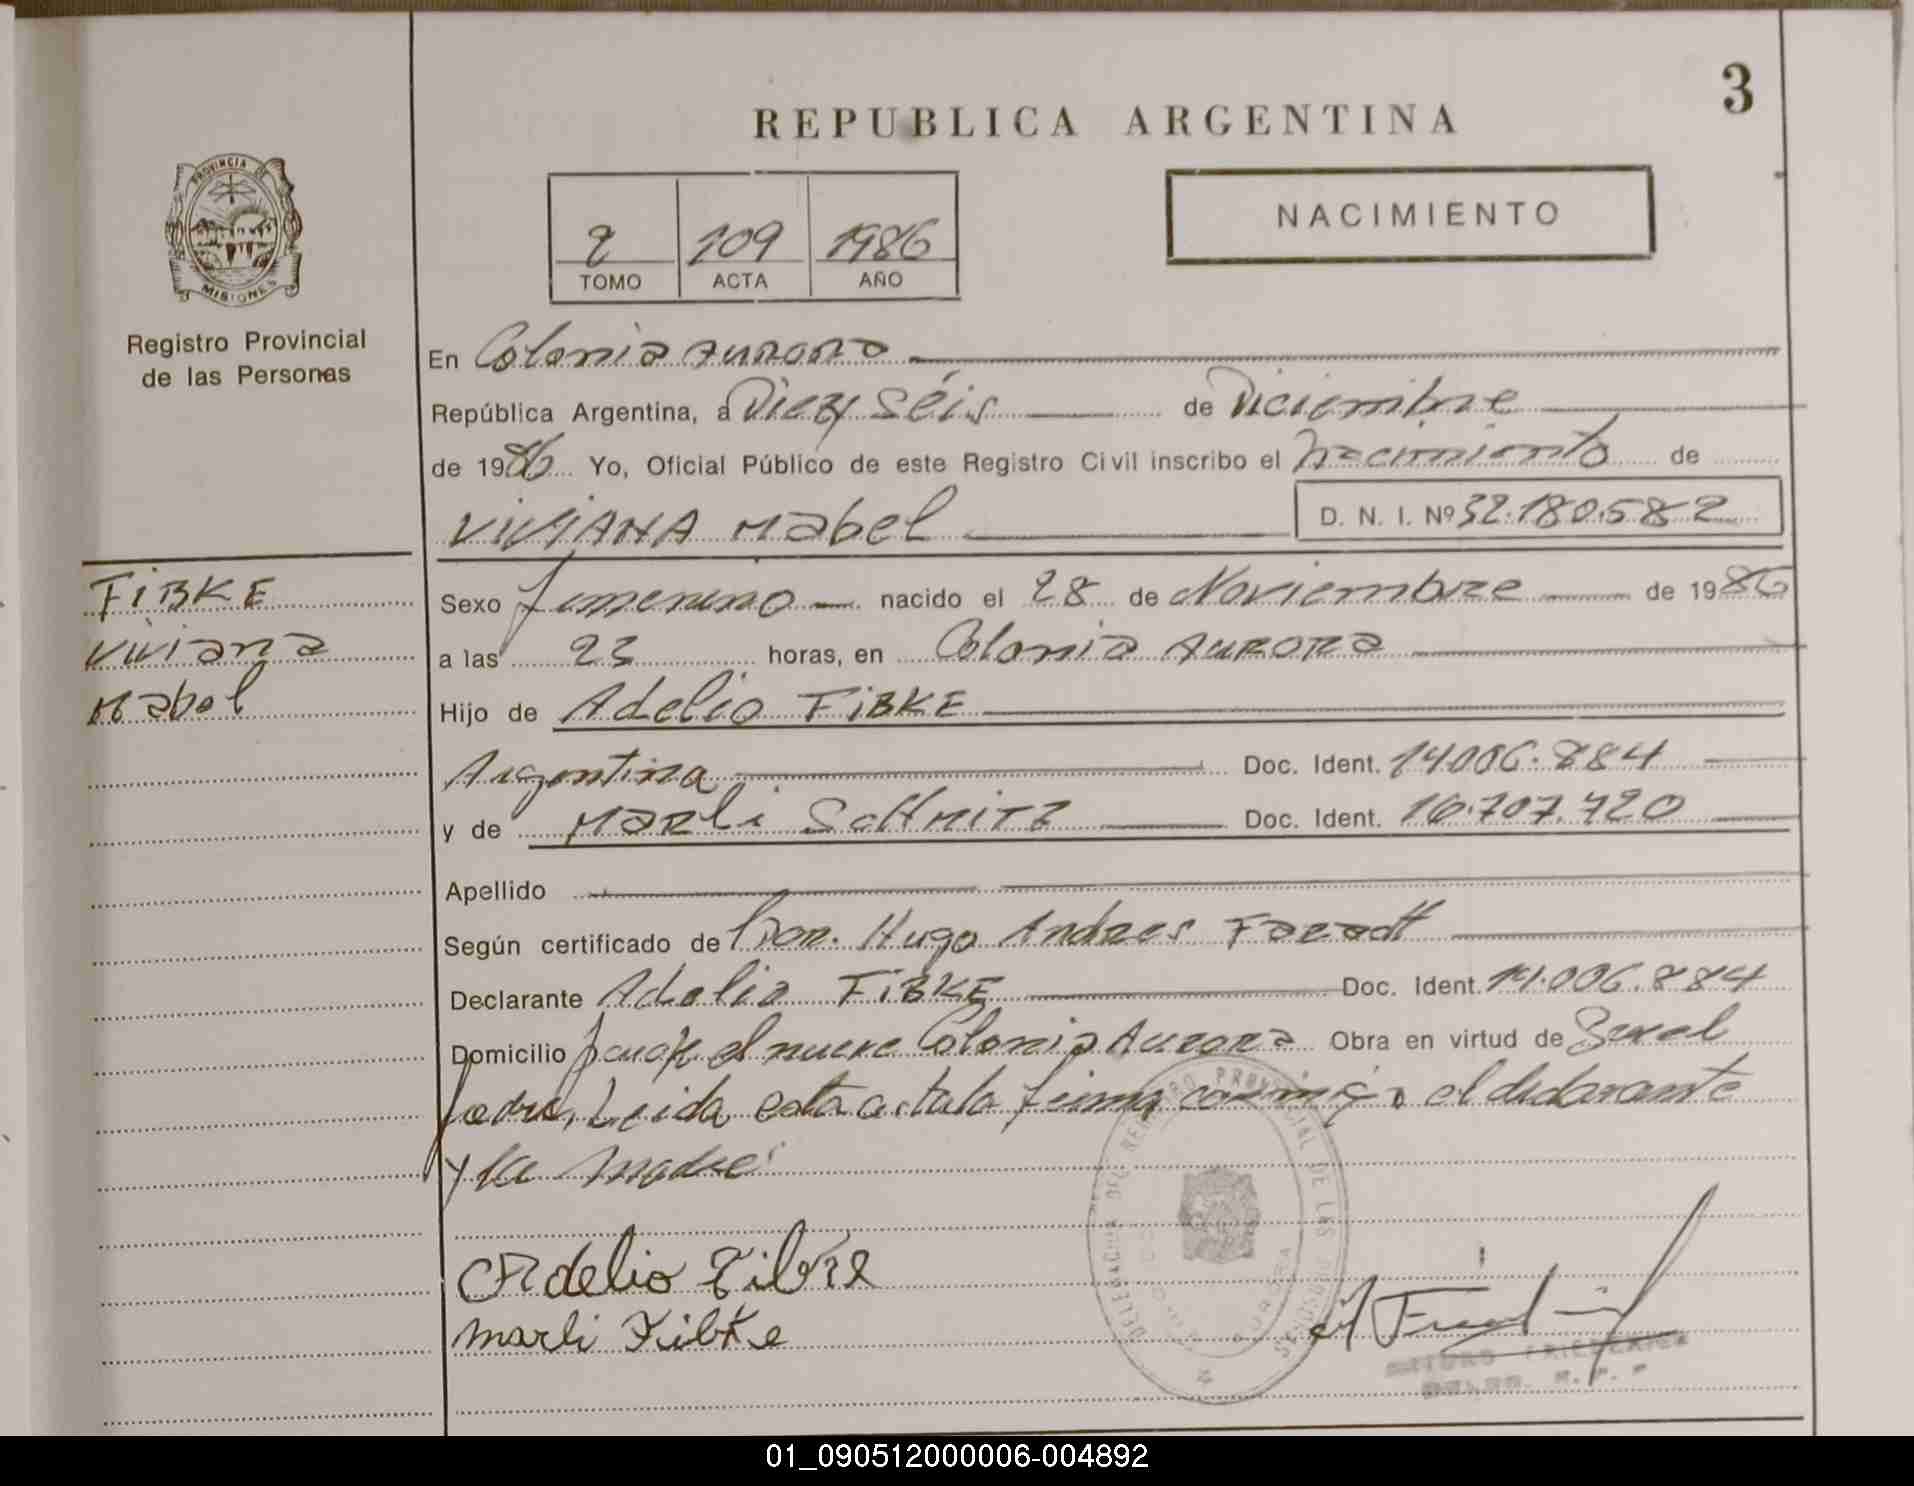 3
REPUBLICA ARGENTINA
PROVINCIA DE MISIONES
Registro Provincial
de las Personas
2 109 1986
TOMO ACTA AÑO
NACIMIENTO
En Colonia Aurora
República Argentina, a Diez y Séis de Diciembre
de 1986 Yo, Oficial Público de este Registro Civil inscribo el Nacimiento de
VIVIANA Mabel
D. N. I. Nº 32.180.582
FIBKE
Viviana
Mabel
Sexo femenino nacido el 28 de Noviembre de 1986
a las 23 horas, en Colonia Aurora
Hijo de Adelio FIBKE
Argentina Doc. Ident. 14.006.884
y de Marli SCHMITZ Doc. Ident. 16.707.720
Apellido
Según certificado de Hugo Andres
Declarante Adelio FIBKE Doc. Ident. 14.006.884
Domicilio el nueve Colonia Aurora Obra en virtud de
Padre, Leida esta acta la firma conmigo el declarante
y la madre
Adelio Fibke
Marli Fibke
DELEGACION DEL REGISTRO PROVINCIAL DE LAS PERSONAS
AURORA
ARTURO
01_090512000006-004892